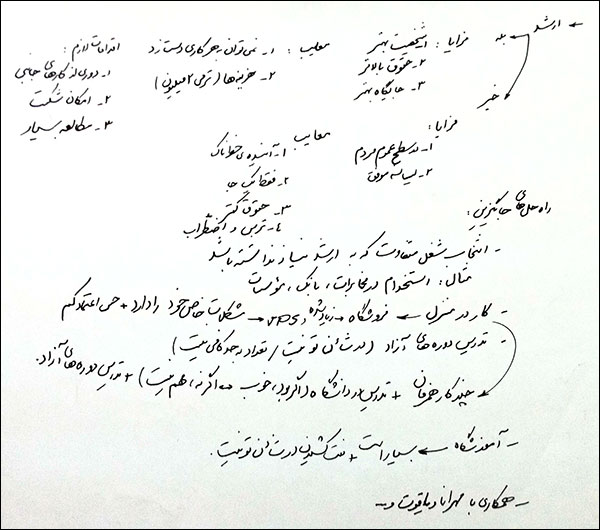 ارشد
بله
مزایا: ۱ـ شخصیت بهتر
۲ـ حقوق بالاتر
۳ـ جایگاه بهتر
معایب: ۱ـ نمی‌توان به هر کاری دست زد
۲ـ هزینه‌ها (ترمی ۲ میلیون)
اقدامات لازم:
۱ـ دوری از کارهای جانبی
۲ـ امکان شکست
۳ـ مطالعه بسیار
خیر
مزایا:
۱ـ در سطح عموم مردم
۲ـ لیسانسه موفق
معایب
۱ـ آینده‌ی خوفناک
۲ـ فقط این جا
۳ـ حقوق کمتر
۴ـ ترس و اضطراب
راه حل‌های جایگزین:
ـ انتخاب شغل متفاوت که به ارشد نیاز نداشته باشد
مثال: استخدام در مخابرات، بانک، مؤسسات
ـ کار در منزل ← فروشگاه ← زیاد شده ← مشکلات خاص خود را دارد + حس اعتماد کم
ـ تدریس دوره‌های آزاد (در شأن تو نیست / تعداد به حد کافی نیست)
چند کار همزمان + تدریس در دانشگاه (اگر بود، خوب ← اگر نه، مهم نیست) + تدریس دوره‌های آزاد.
ـ آموزشگاه ← بسیار است + منت کشیدن در شأن تو نیست.
ـ همکاری با مهرانا و یاقوت و ...